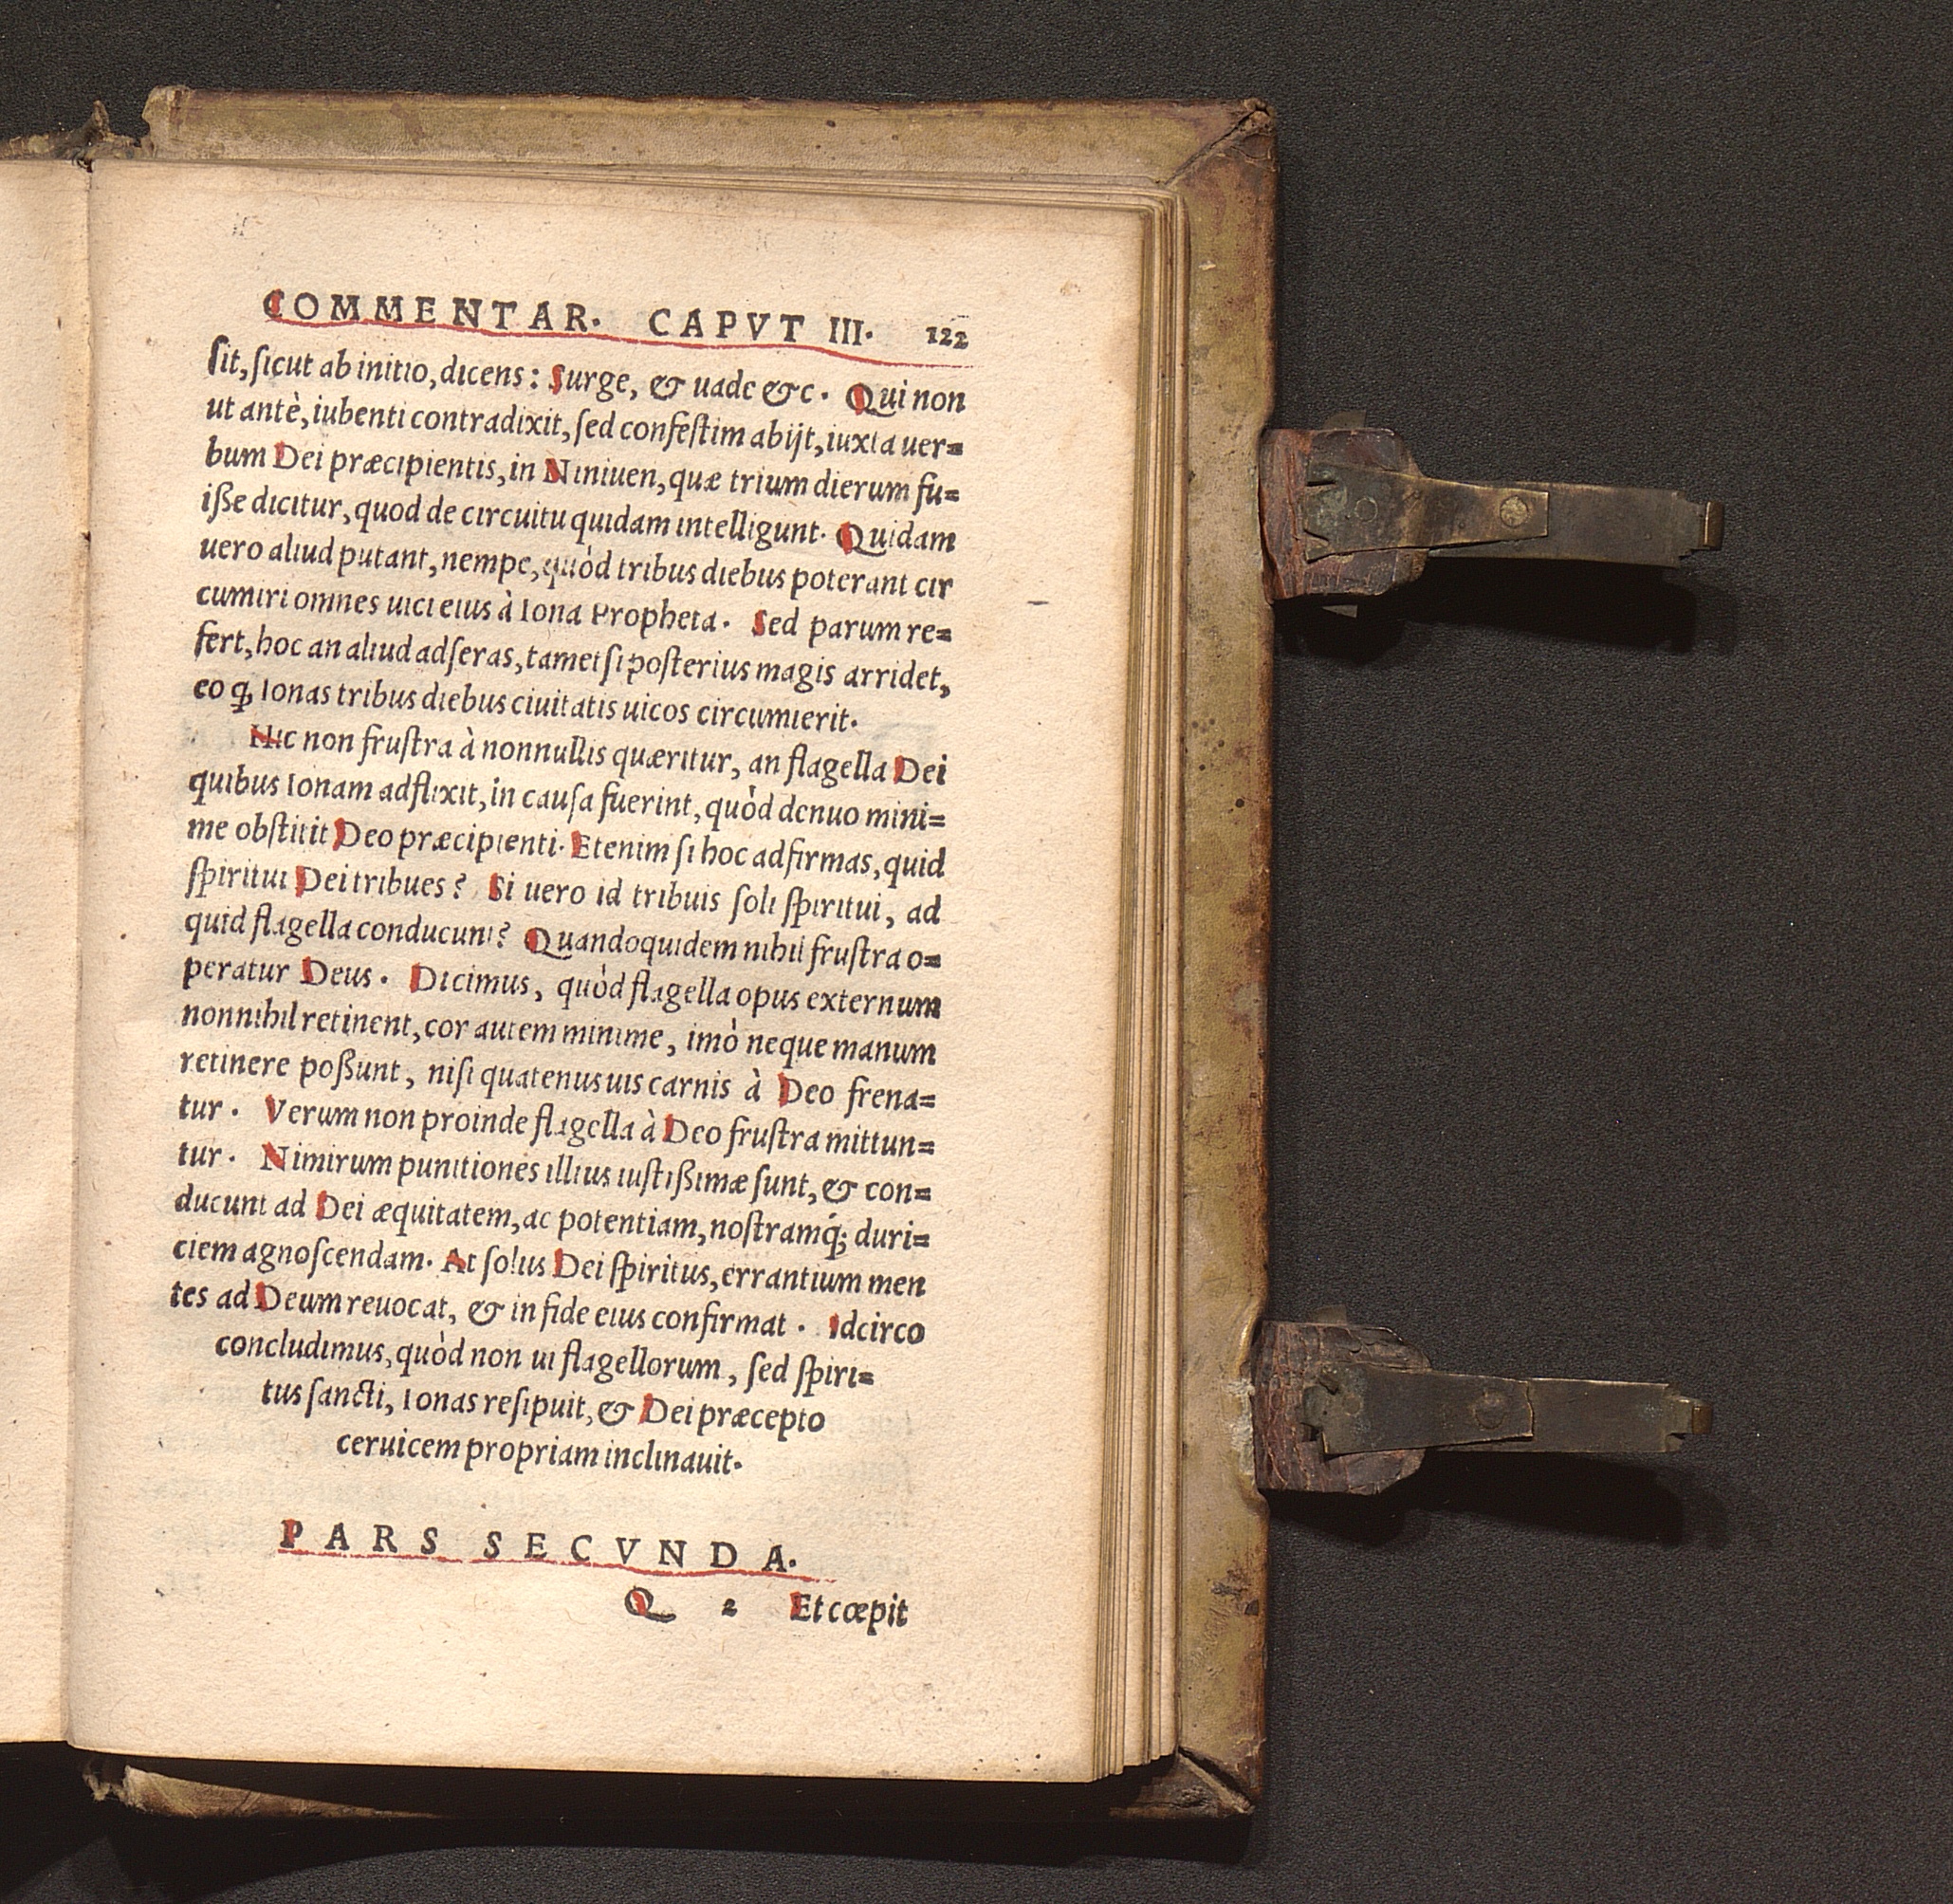 COMMENTAR. CAPVT III. 122
ſit, ſicut ab initio, dicens: Surge, & uade &c. Qui non
ut antè, iubenti contradixit, ſed confeſtim abijt, iuxta uer=
bum Dei præcipientis, in Niniuen, quæ trium dierum fu=
iſſe dicitur, quod de circuitu quidam intelligunt. Quidam
uero aliud putant, nempe, quòd tribus diebus poterant cir
cumiri omnes uici eius à Iona Propheta. Sed parum re=
fert, hoc an aliud adſeras, tametſi poſterius magis arridet,
eo ꝙ Ionas tribus diebus ciuitatis uicos circumierit.
Hic non fruſtra à nonnullis quæritur, an flagella Dei
quibus Ionam adflixit, in cauſa fuerint, quòd denuo mini=
me obſtitit Deo præcipienti. Etenim ſi hoc adfirmas, quid
ſpiritui Dei tribues? Si uero id tribuis ſoli ſpiritui, ad
quid flagella conducunt? Quandoquidem nihil fruſtra o=
peratur Deus. Dicimus, quòd flagella opus externum
nonnihil retinent, cor autem minime, imò neque manum
retinere poſſunt, niſi quatenus uis carnis à Deo frena=
tur. Verum non proinde flagella à Deo fruſtra mittun=
tur. Nimirum punitiones illius iuſtißimæ ſunt, & con=
ducunt ad Dei æquitatem, ac potentiam, noſtramq́; duri=
ciem agnoſcendam. At ſolus Dei ſpiritus, errantium men
tes ad Deum reuocat, & in fide eius confirmat. Idcirco
concludimus, quòd non ui flagellorum, ſed ſpiri=
tus ſancti, Ionas reſipuit, & Dei præcepto
ceruicem propriam inclinauit.
PARS SECVNDA.
Q 2 Et cœpit